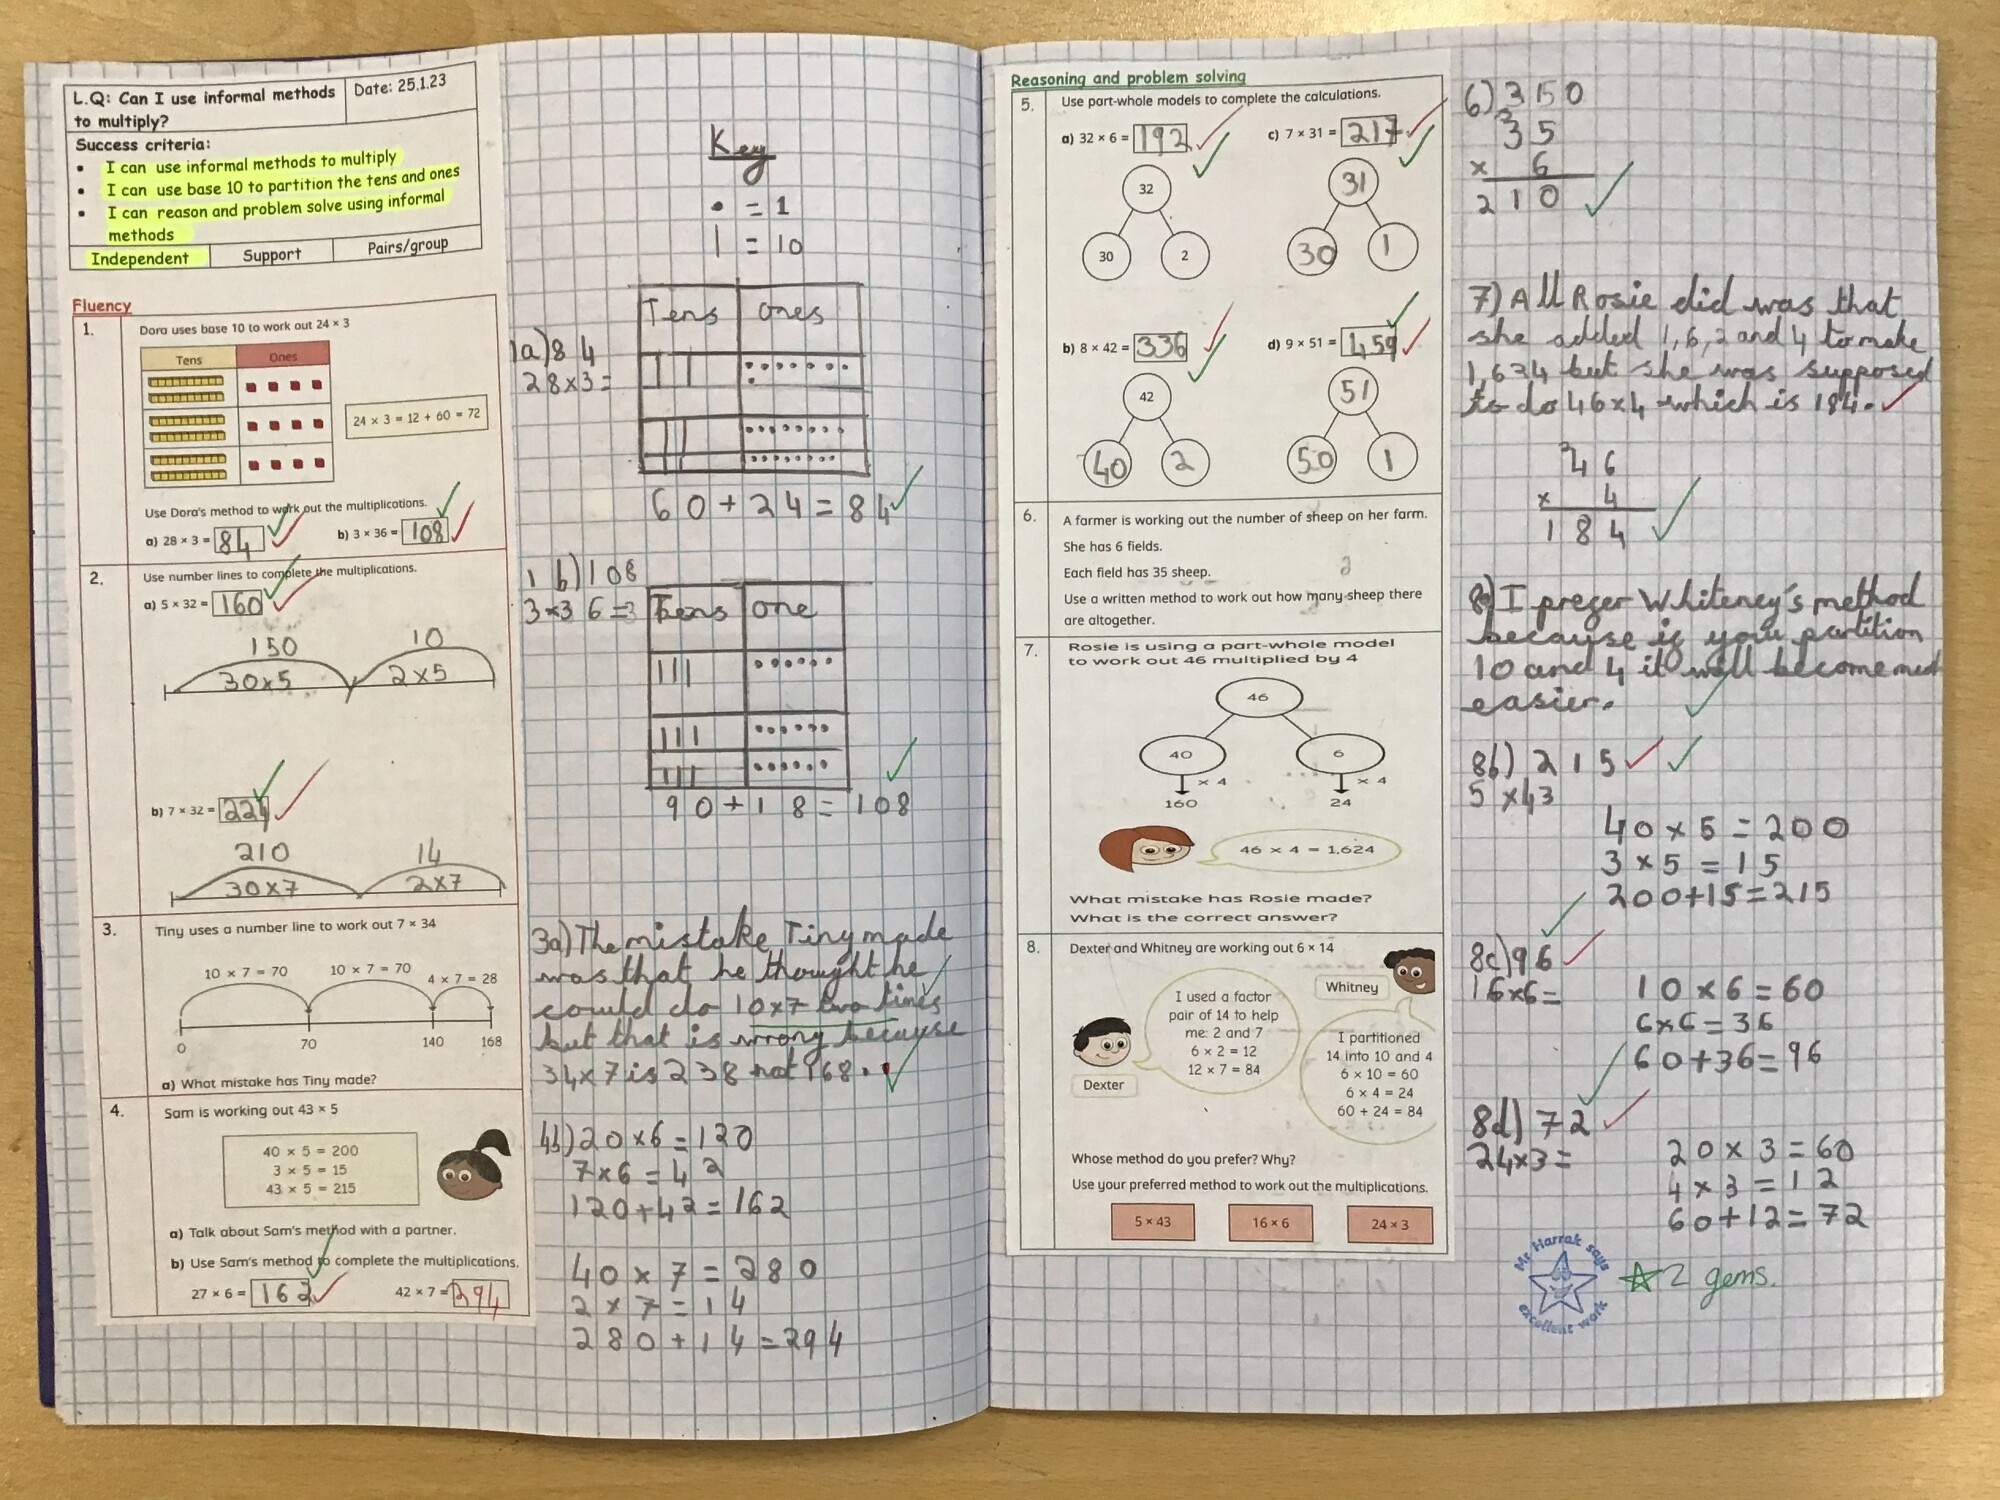 L.Q: Can I use informal methods
to multiply?
Date: 25.1.23
Success criteria:
• I can use informal methods to multiply
• I can use base 10 to partition the tens and ones
• I can reason and problem solve using informal
methods
Independent
Support
Pairs/group
Fluency
1.
Dora uses base 10 to work out 24 × 3
Tens
Ones
24 × 3 = 12 + 60 = 72
Use Dora's method to work out the multiplications.
a) 28 × 3 = 84
b) 3 × 36 = 108
2.
Use number lines to complete the multiplications.
a) 5 × 32 = 160
150
10
30×5
2×5
b) 7 × 32 = 224
210
14
30×7
2×7
3.
Tiny uses a number line to work out 7 × 34
10 × 7 = 70
10 × 7 = 70
4 × 7 = 28
0
70
140
168
a) What mistake has Tiny made?
4.
Sam is working out 43 × 5
40 × 5 = 200
3 × 5 = 15
43 × 5 = 215
a) Talk about Sam's method with a partner.
b) Use Sam's method to complete the multiplications.
27 × 6 = 162
42 × 7 = 294
Key
• = 1
| = 10
1a) 84
28×3=
Tens
ones
60+24=84
1 b) 108
3×36=
Tens
one
90+18=108
3a) The mistake Tiny made
was that he thought he
could do 10×7 two times
but that is wrong because
34×7 is 238 not 168.
4b) 20×6=120
7×6=42
120+42=162
40×7=280
2×7=14
280+14=294
Reasoning and problem solving
5.
Use part-whole models to complete the calculations.
a) 32 × 6 = 192
c) 7 × 31 = 217
32
31
30
2
30
1
b) 8 × 42 = 336
d) 9 × 51 = 459
42
51
40
2
50
1
6.
A farmer is working out the number of sheep on her farm.
She has 6 fields.
Each field has 35 sheep.
Use a written method to work out how many sheep there
are altogether.
7.
Rosie is using a part-whole model
to work out 46 multiplied by 4
46
40
6
× 4
× 4
160
24
46 × 4 = 1,624
What mistake has Rosie made?
What is the correct answer?
8.
Dexter and Whitney are working out 6 × 14
Whitney
I used a factor
pair of 14 to help
me: 2 and 7
6 × 2 = 12
12 × 7 = 84
Dexter
I partitioned
14 into 10 and 4
6 × 10 = 60
6 × 4 = 24
60 + 24 = 84
Whose method do you prefer? Why?
Use your preferred method to work out the multiplications.
5 × 43
16 × 6
24 × 3
6)
35
× 6
210
7) All Rosie did was that
she added 1,6,2 and 4 to make
1,624 but she was supposed
to do 46×4 which is 184.
46
× 4
184
I prefer Whiteney's method
because if you partition
10 and 4 it will become much
easier.
8b) 215
5×43
40×5=200
3×5=15
200+15=215
8c) 96
16×6=
10×6=60
6×6=36
60+36=96
8d) 72
24×3=
20×3=60
4×3=12
60+12=72
Harrak says
excellent work
2 gems.